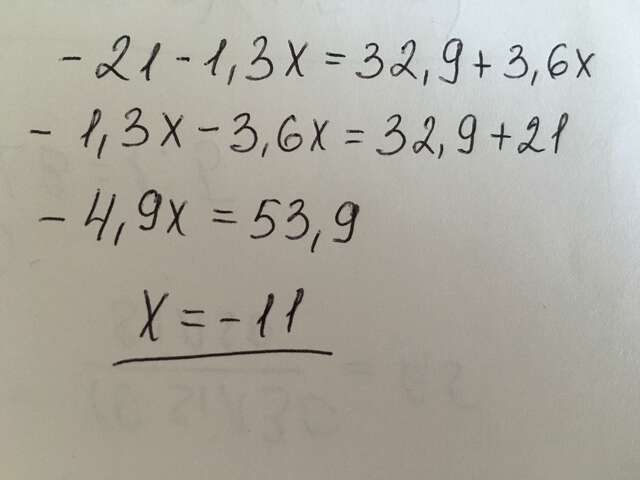 - 21 - 1,3x = 32,9 + 3,6x
- 1,3x - 3,6x = 32,9 + 21
- 4,9x = 53,9
x = - 11